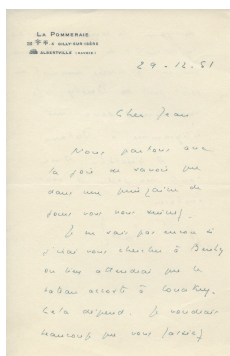 LA POMMERAIE
A GILLY-SUR-ISÈRE
ALBERTVILLE (SAVOIE)
29-12-51
Cher Jean
Nous partons avec
la joie de savoir que
dans une quinzaine de
jours vous nous
Je ne sais pas encore si
j'irai vous chercher à
ou bien attendrai que le
bateau à Conakry.
Cela dépend. Je voudrais
beaucoup que vous